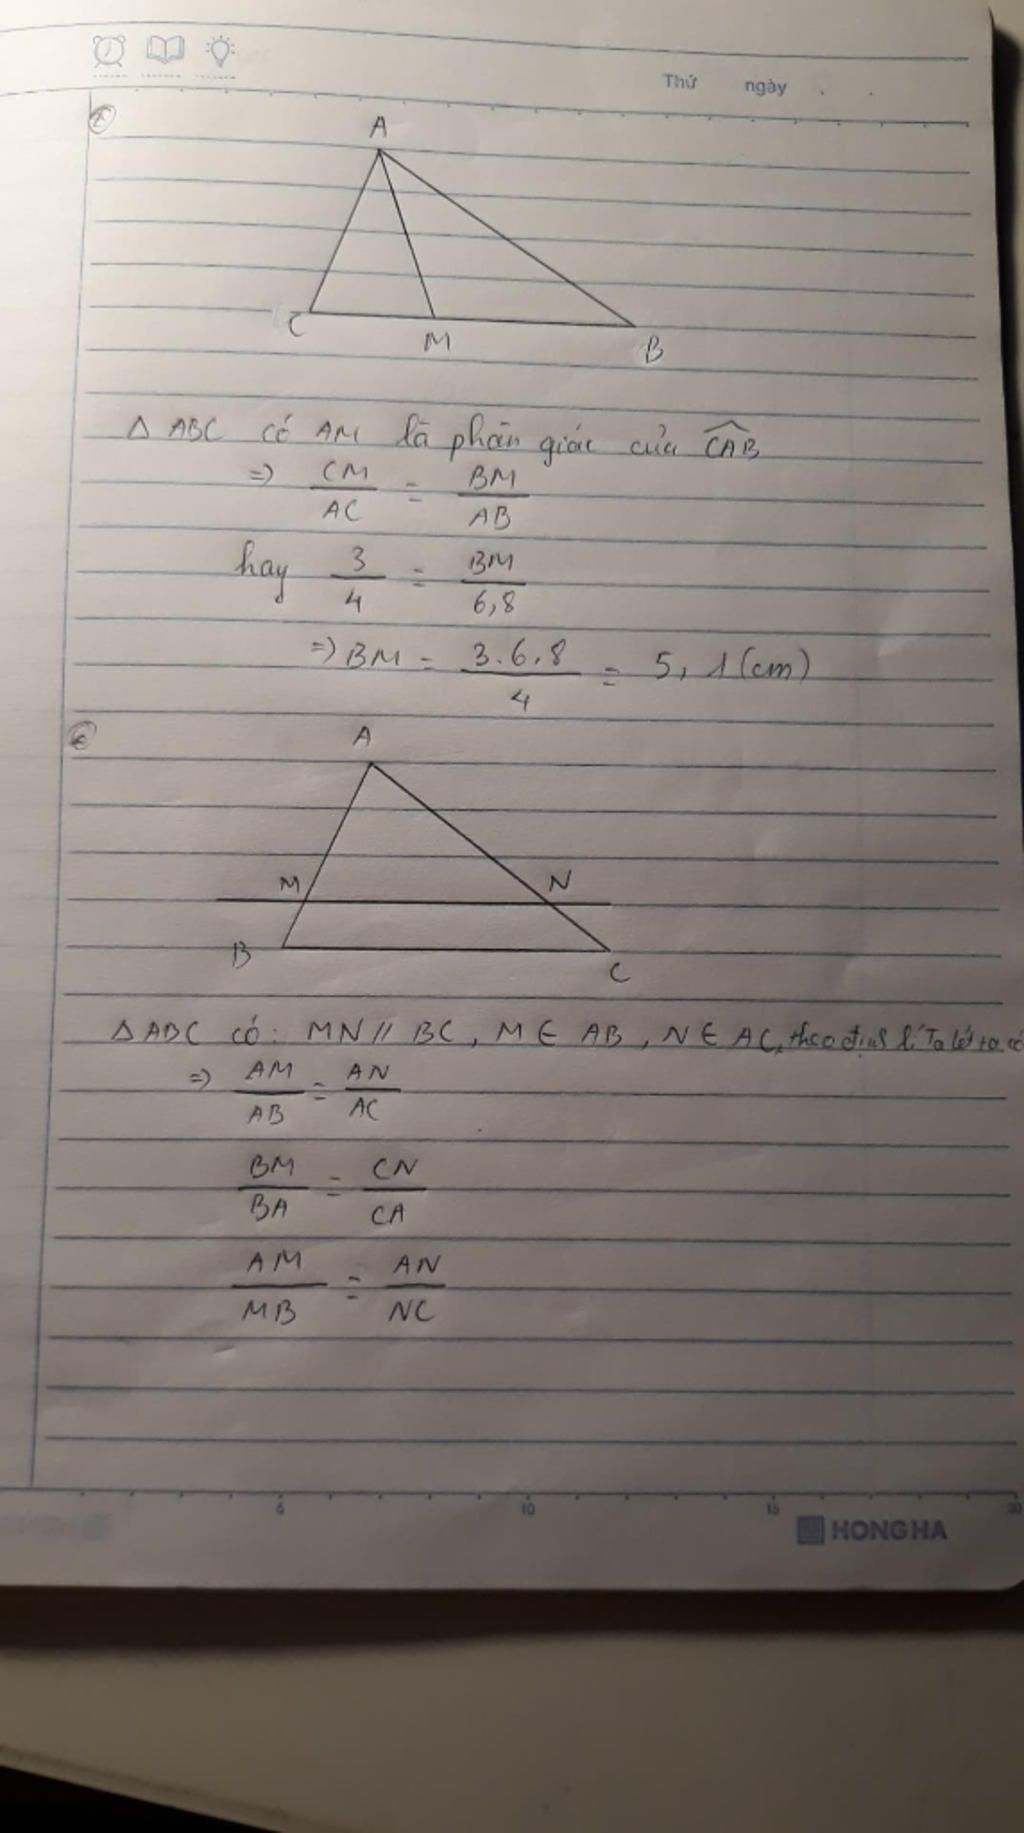 Thứ ngày
A
C
M
B
Δ ABC có AM là phân giác của \widehat{CAB}
=> CM/AC = BM/AB
hay 3/4 = BM/6,8
=> BM = 3.6,8/4 = 5,1 (cm)
A
M N
B C
Δ ABC có: MN // BC, M ∈ AB, N ∈ AC, theo định lí Ta lét ta có
=> AM/AB = AN/AC
BM/BA = CN/CA
AM/MB = AN/NC
5 10 15 20
HONG HA